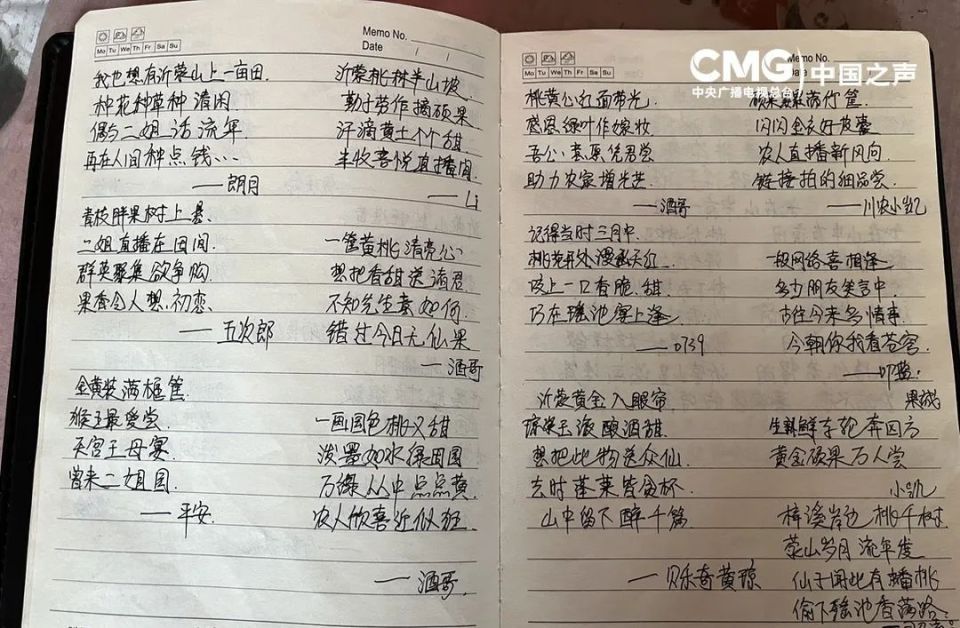 Mo Tu We Th Fr Sa Su
Memo No.
Date
我也想有沂蒙山上一亩田.
种花种草种清闲.
偶与二姐话流年
再在人间种点钱...
——朗月
沂蒙桃林半山坡
勤于劳作摘硕果
汗滴黄土个个甜
丰收喜悦直播间.
——Li
青枝胖果树上悬.
二姐直播在田间.
群英聚集欲争购.
果香令人想初恋.
——五次郎
一筐黄桃清亮心
想把香甜送诸君
不知先生意如何.
错过今日无仙果
——酒哥
金黄装满框筐
猴王最爱尝
天宫王母宴.
曾来二姐园.
——平安.
一画国色桃又甜
泼墨如水绿田园
万绿丛中点点黄
农人欣喜近似狂
——酒哥.
Mo Tu We Th Fr Sa Su
Memo No.
CMG 中国之声
中央广播电视总台
桃黄心红面带光
感恩绿叶作嫁妆
助力农家增光芒
——酒哥
满竹筐.
农人直播新风向
链接拍的细品尝.
——川农小凯
记得当时三月中.
咬上一口香脆甜
巧在瑶池宴上逢.
——0739
一根网络喜相逢
多少朋友笑言中.
古往今来多情事.
今朝你我看苍穹.
沂蒙黄金入眼帘
琼浆玉液酿酒甜.
想把此物送众仙
去时蓬莱皆贪杯.
山中留下醉千篇
——贝乐奇黄琼
果诚
生新鲜车轮奔四方
黄金硕果万人尝
小凯
梓溪岸边桃千树.
蒙山岁月流年度
仙子闻此有播桃
偷下瑶池香荡路.